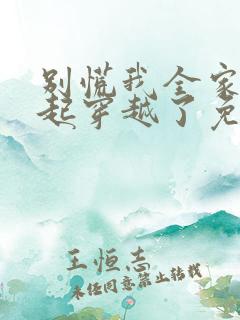 别慌我全家
起穿越了免
王恒志
未经同意禁止转载